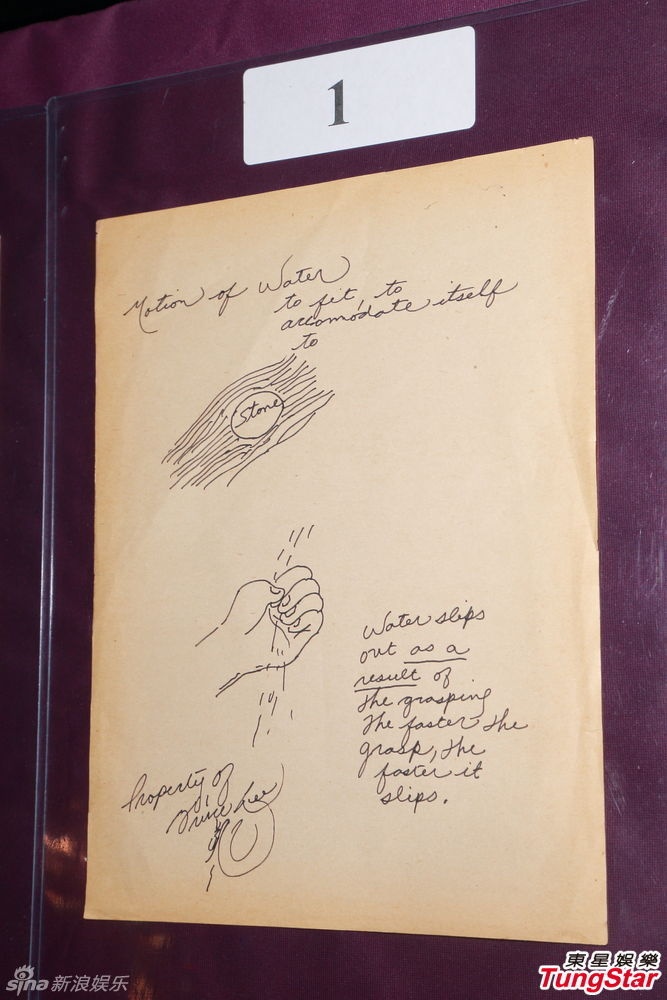 1
Motion of Water
to fit, to
accomodate itself
to
Stone
Water slips
out as a
result of
the grasping
the faster the
grasp, the
faster it
slips.
Property of
Bruce Lee
sina新浪娱乐
東星娛樂
TungStar